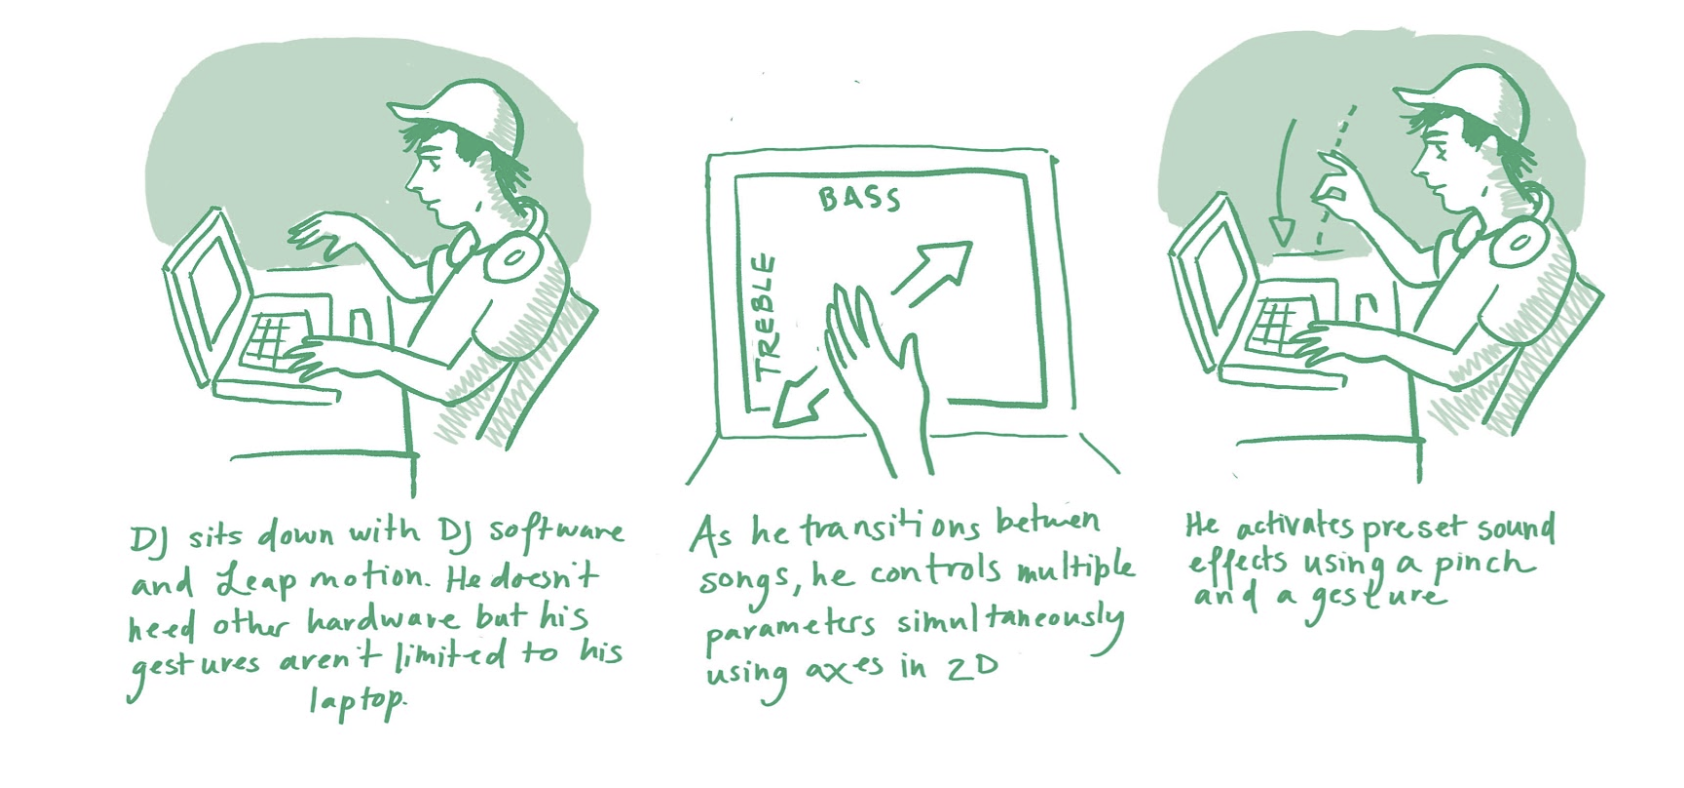 DJ sits down with DJ software
and Leap motion. He doesn't
need other hardware but his
gestures aren't limited to his
laptop.
BASS
TREBLE
As he transitions between
songs, he controls multiple
parameters simultaneously
using axes in 2D
He activates preset sound
effects using a pinch
and a gesture